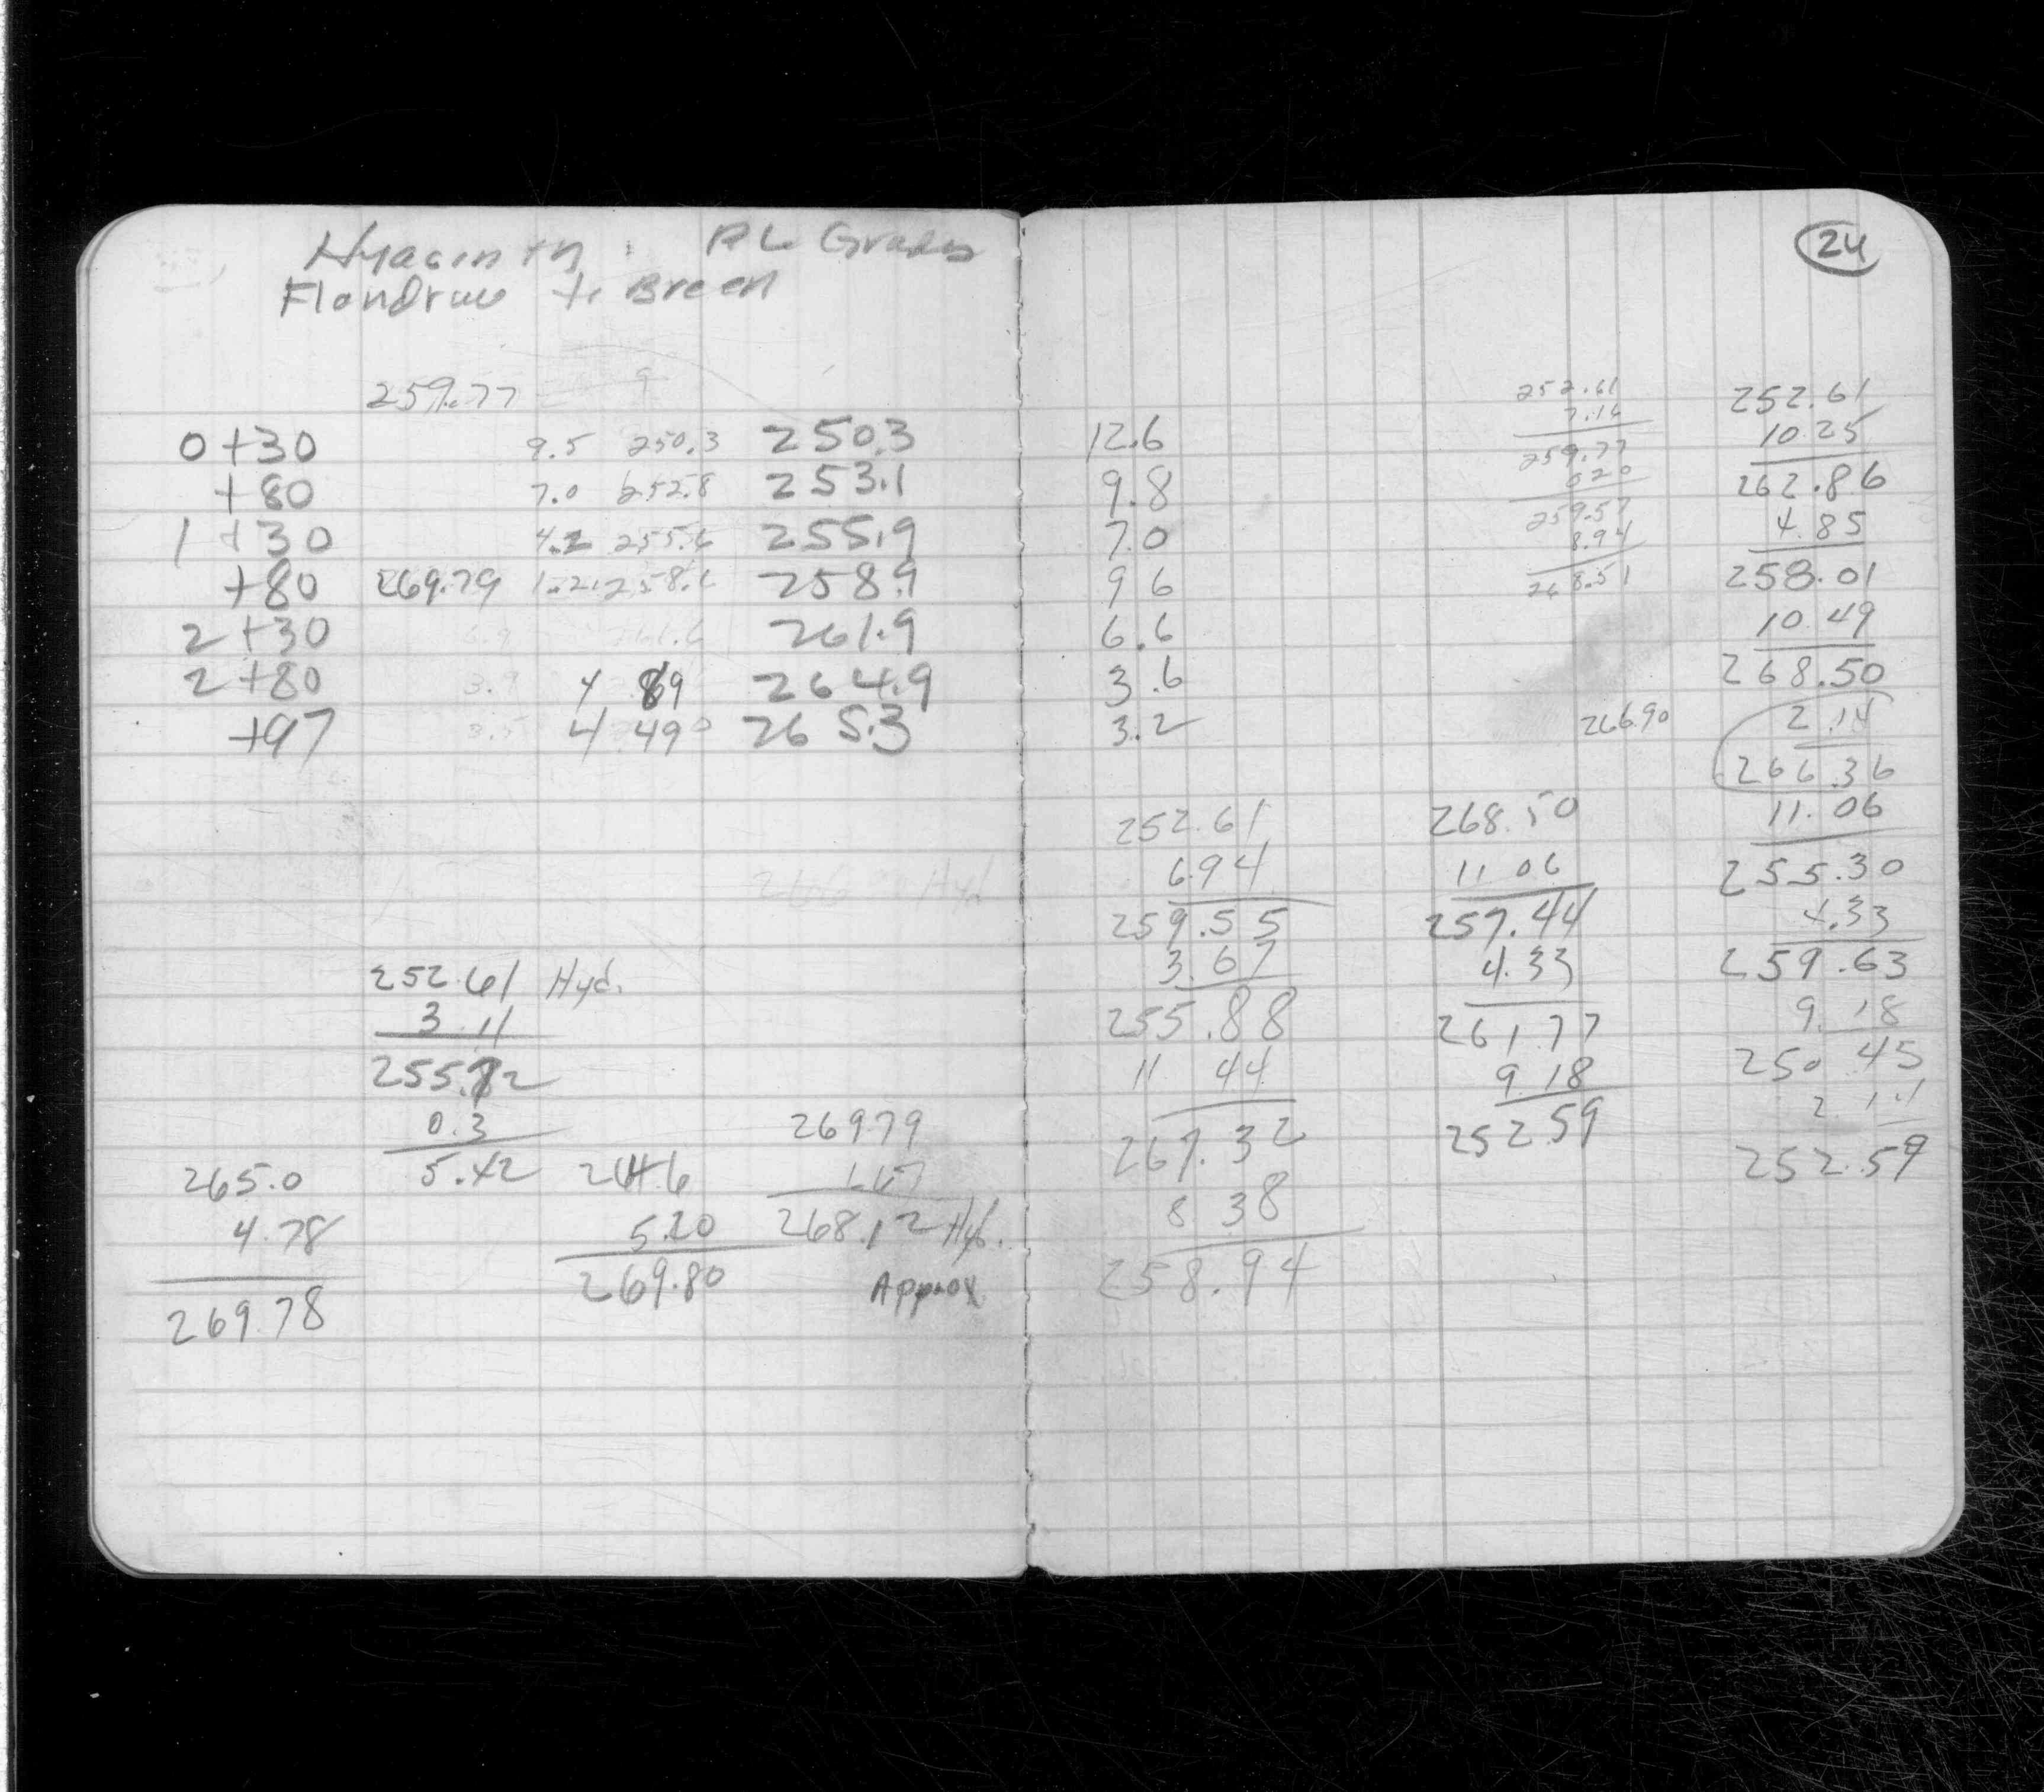 Hyacinth : PL Grades
Flandrau to Breen
259.77
0+30 9.5 250.3 250.3
+80 7.0 252.8 253.1
1+30 4.2 255.6 255.9
+80 269.79 1.2 258.6 258.9
2+30 6.9 261.6 261.9
2+80 3.9 4 89 264.9
+97 3.5 4 49 265.3
252.61 Hyd.
3.11
255.72
0.3
5.42
265.0
4.78
269.78
264.6
5.20
269.80
269.79
1.67
268.12 Hyd.
Approx.
24
12.6
9.8
7.0
9 6
6.6
3.6
3.2
252.61
7.16
259.77
0.20
259.57
8.94
268.51
266.90
252.61
10.25
262.86
4.85
258.01
10.49
268.50
2.14
266.36
11.06
255.30
4.33
259.63
9.18
250.45
2.14
252.59
252.61
6.94
259.55
3.67
255.88
11 44
267.32
8 38
258.94
268.50
11 06
257.44
4.33
261.77
9 18
252 59